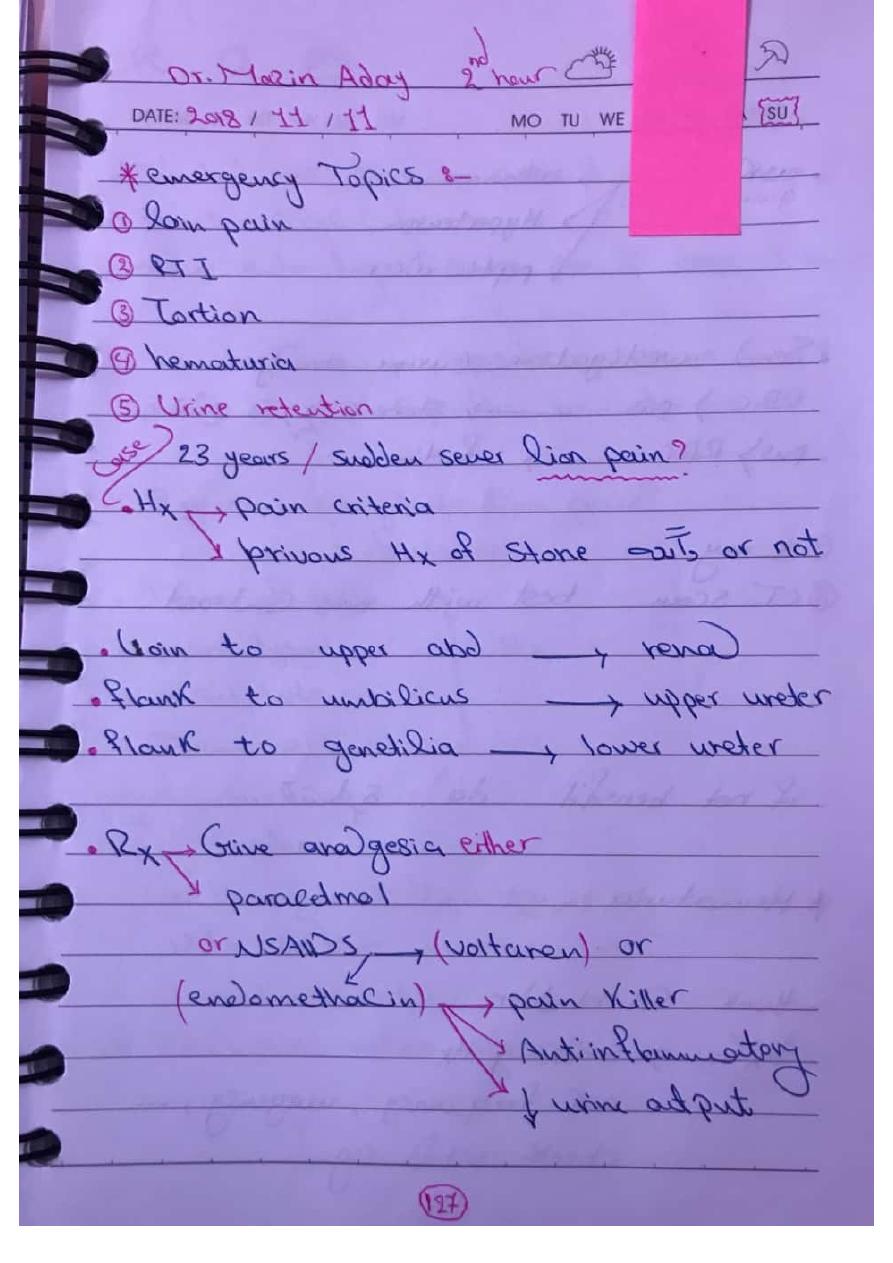 Dr. Mazin Aday 2nd hour
DATE: 2018 / 11 / 11 MO TU WE SU
* emergency Topics :-
① loin pain
② RTI
③ Tortion
④ hematuria
⑤ Urine retention
Case 23 years / sudden sever lion pain?
. Hx → pain criteria
→ privous Hx of Stone or not
. Loin to upper abd → renal
. flank to umbilicus → upper ureter
. flank to genetilia → lower ureter
. Rx → Give analgesia either
→ paracetmol
or NSAIDS → (voltaren) or
(endomethacin) → pain Killer
→ Antiinflammatory
→ ↓ urine output
127